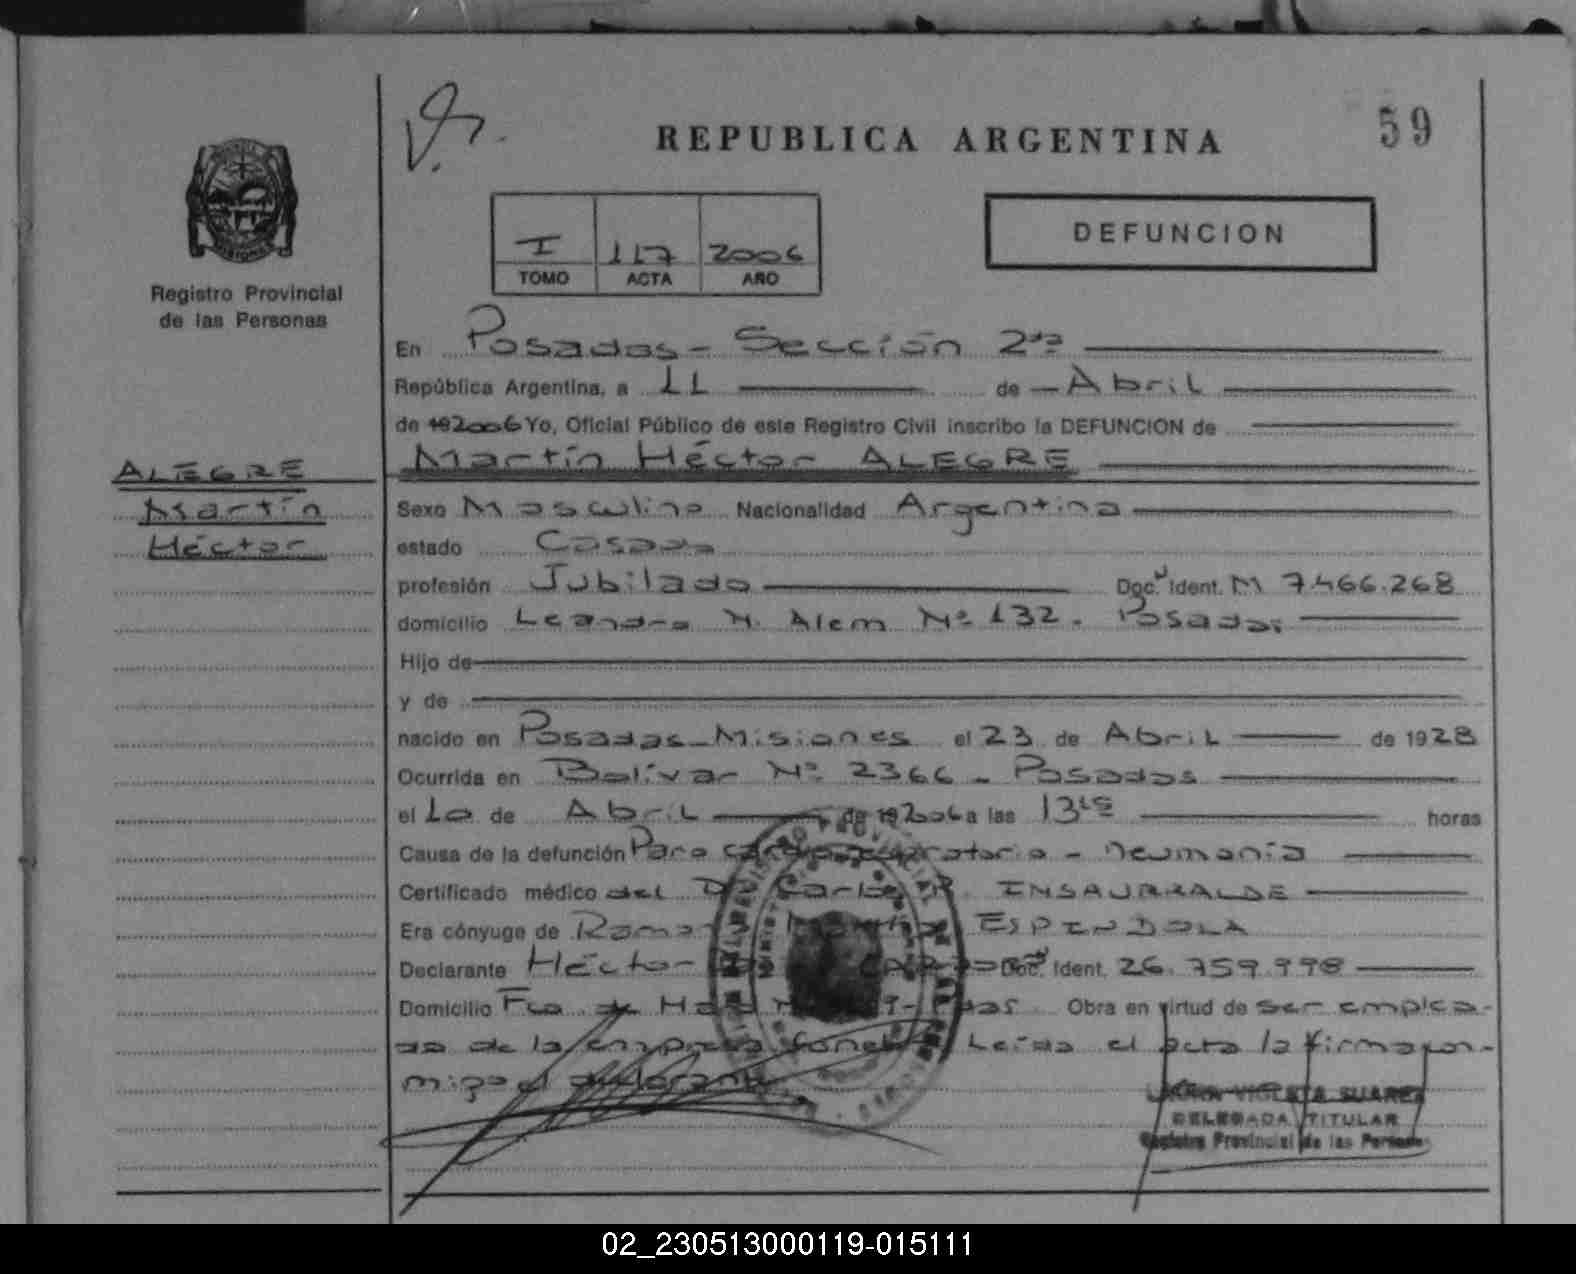 59
REPUBLICA ARGENTINA
DEFUNCION
I 117 2006
TOMO ACTA AÑO
Registro Provincial
de las Personas
En Posadas - Sección 2da
República Argentina, a 11 de Abril
de 192006 Yo, Oficial Público de este Registro Civil inscribo la DEFUNCION de
Martín Héctor ALEGRE
ALEGRE
Martín
Héctor
Sexo Masculino Nacionalidad Argentina
estado Casado
profesión Jubilado Doc. Ident. M 7.466.268
domicilio Leandro N. Alem Nº 132. Posadas
Hijo de
y de
nacido en Posadas - Misiones el 23 de Abril de 1928
Ocurrida en Bolívar Nº 2366 - Posadas
el 10 de Abril de 192006 a las 1315 horas
Causa de la defunción Paro - neumonía
Certificado médico del Dr. Carlos R. INSAURRALDE
Era cónyuge de ESPINDOLA
Declarante Héctor Doc. Ident. 26.759.998
Domicilio Fco de Obra en virtud de ser emplea-
do de la empresa Leída el acta la firma con-
migo el declarante
MARIA VIOLETA SUAREZ
DELEGADA TITULAR
Registro Provincial de las Personas
02_230513000119-015111